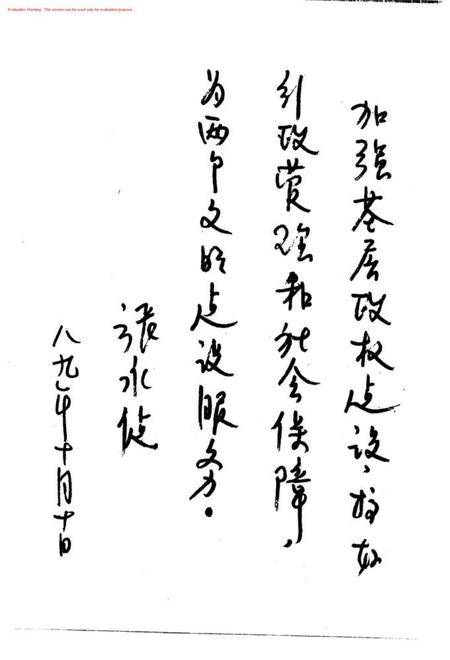 Evaluation Warning : The version can be used only for evaluation purpose.
加强基层政权建设，搞好
行政管理和社会保障，
为两个文明建设服务。
张永
八九年十月十日